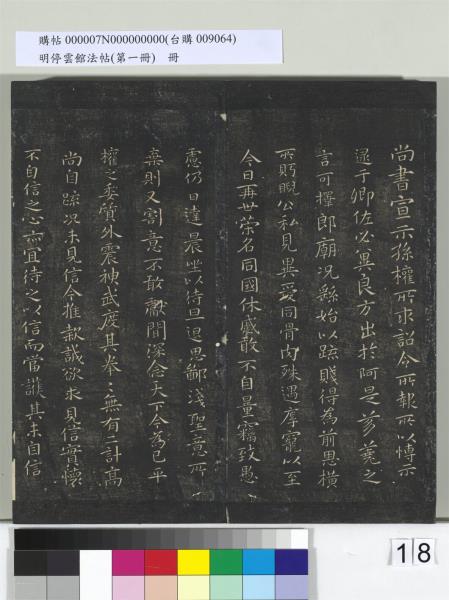 購帖 000007N000000000(台購 009064)
明停雲館法帖(第一冊) 冊
尚書宣示孫權所求詔令所報所以博示
逮于卿佐必冀良方出於阿是芻蕘之
言可擇郎廟況繇始以疏賤得為前恩橫
所眄睨公私見異愛同骨肉殊遇厚寵以至
今日再世榮名同國休慼敢不自量竊致愚
慮仍日達晨坐以待旦退思鄙淺聖意所
棄則又割意不敢獻聞深念天下今為已平
權之委質外震神武度其拳〻無有二計高
尚自疏況未見信今推款誠欲求見信實懷
不自信之心亦宜待之以信而當護其未自信
18